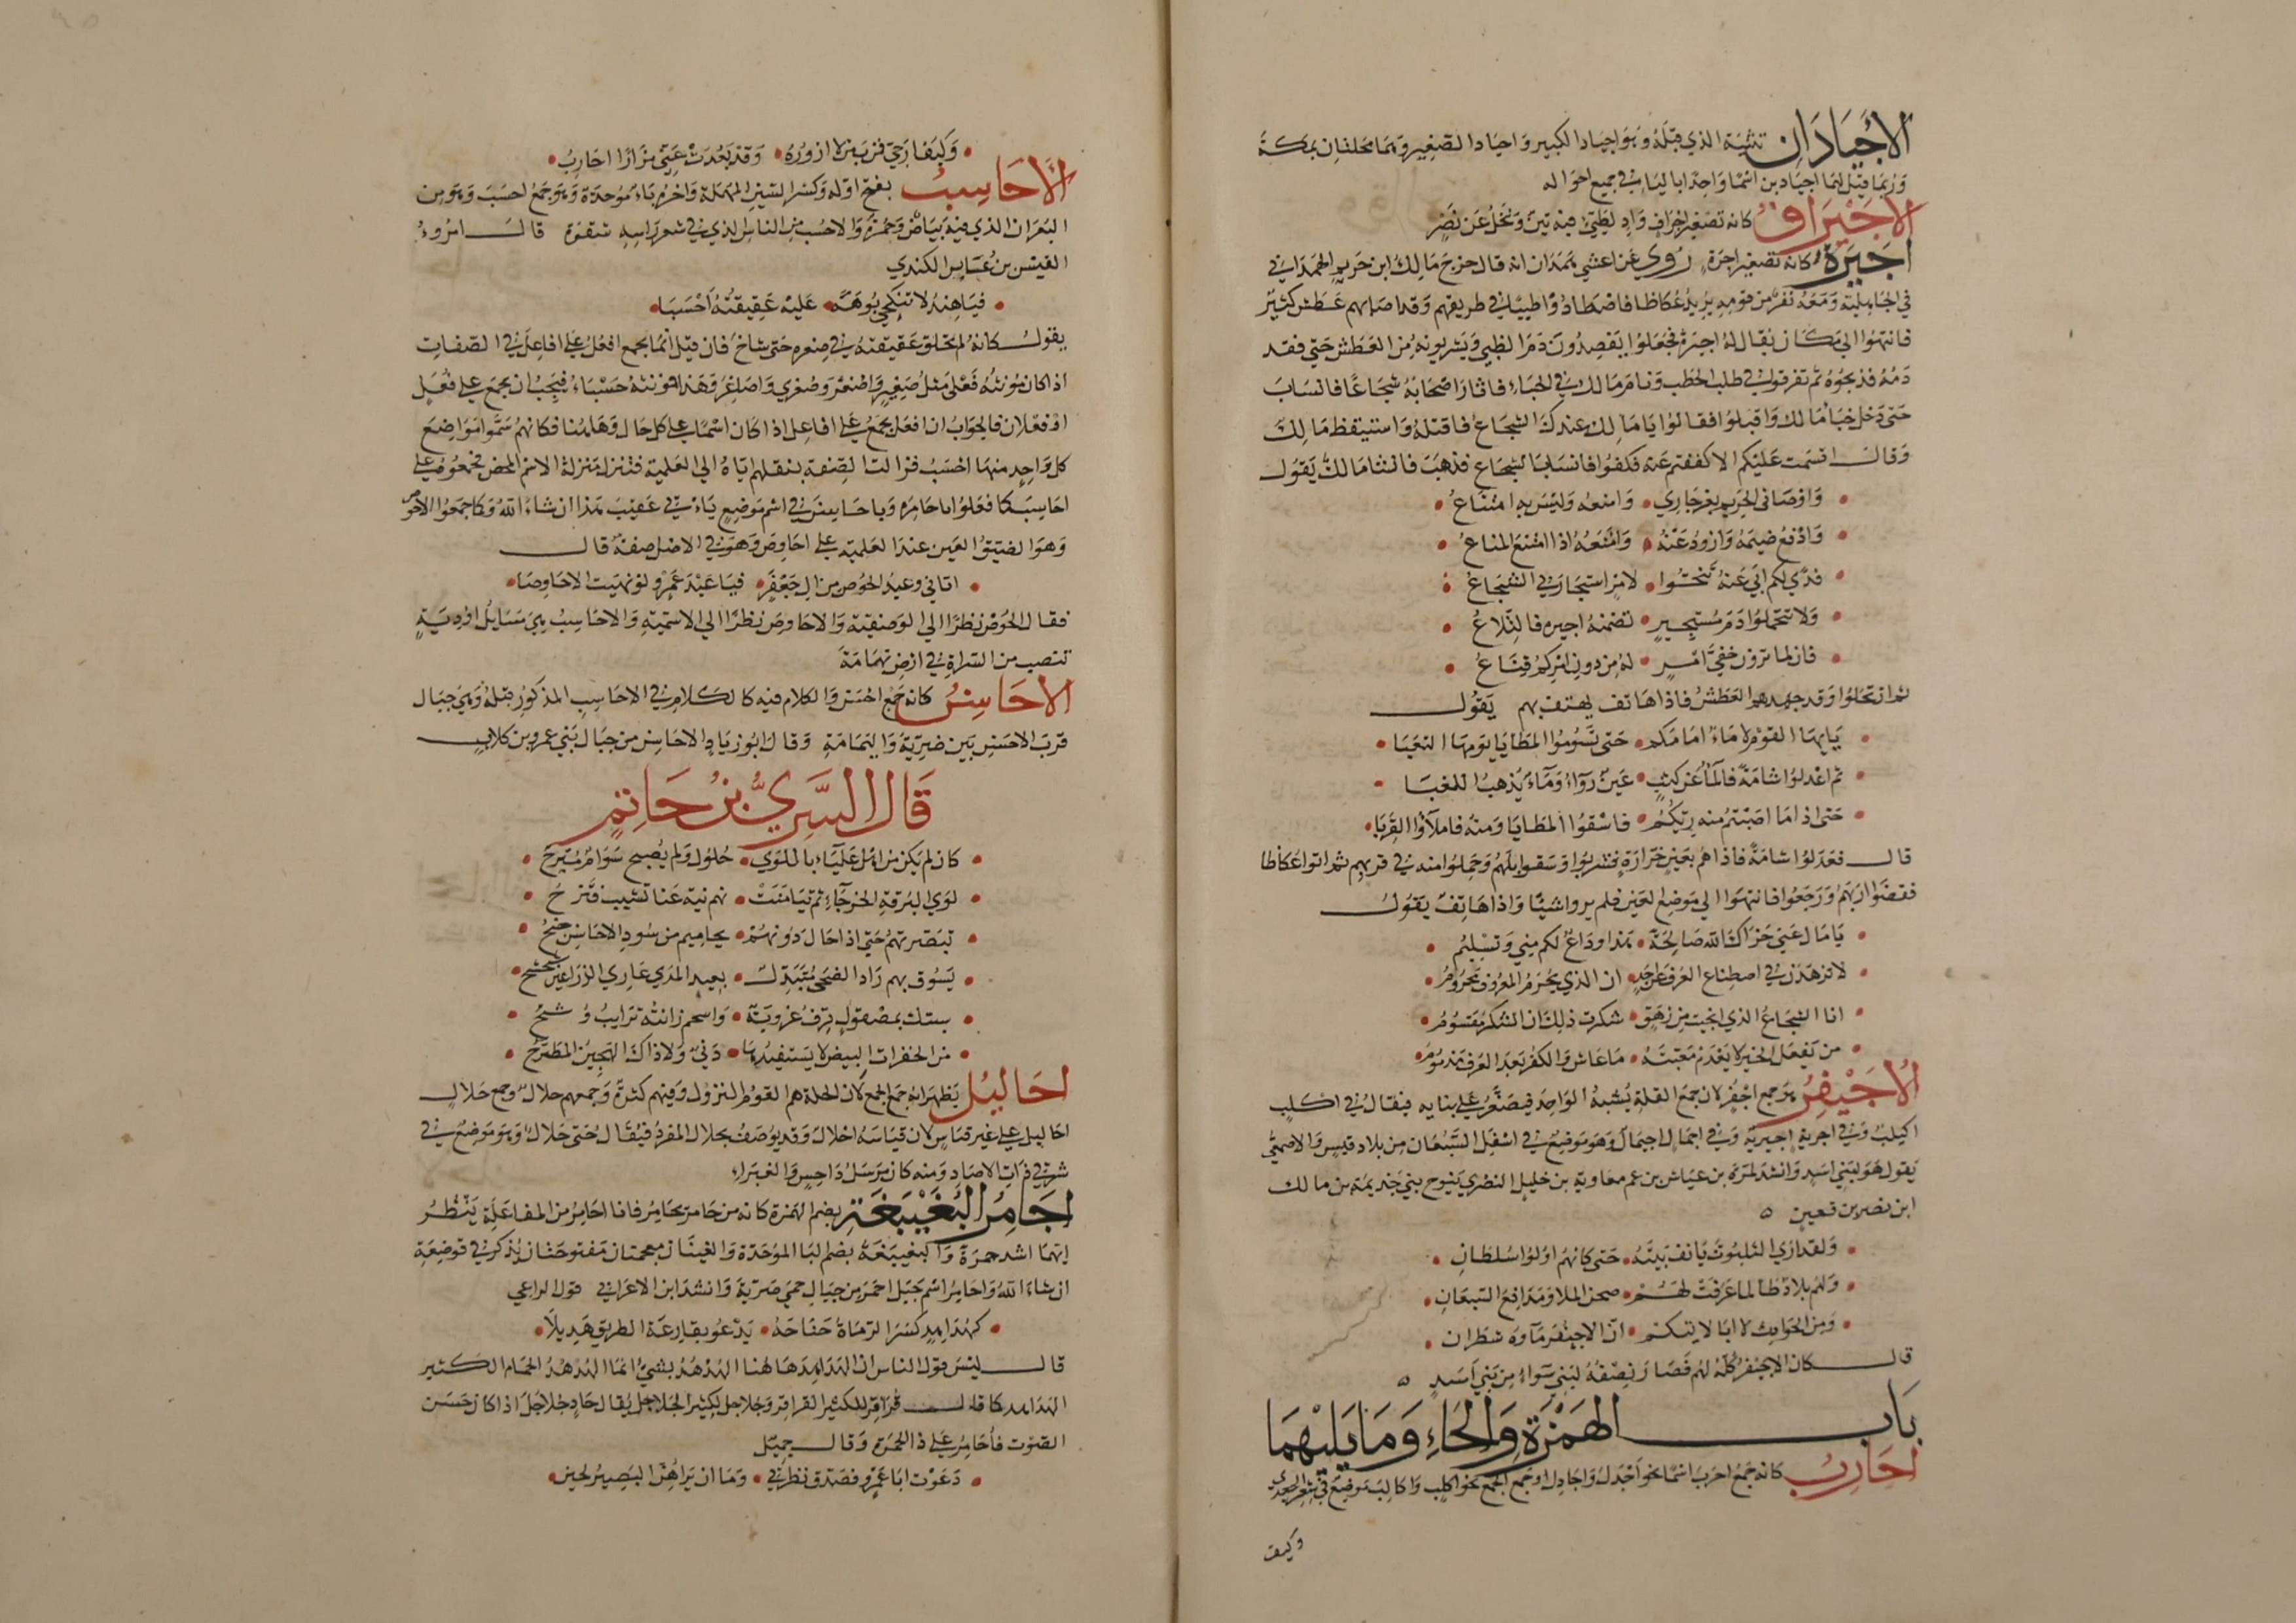 الأجيادان تثنية الذي قبله وهو اجياد الكبير واجياد الصغير وهما محلتان بمكة
وربما قيل لهما اجيادين اسما واحدا بالياء في جميع احواله
الاجيراف كانه تصغير اجراف واد لطيئ فيه تين ونخل عن نصر
اجيرة كانه تصغير اجرة روي عن اعشى همدان انه قال خرج مالك ابن حريم الهمداني
في الجاهلية ومعه نفر من قومه يريد عكاظا فاصطادوا ظبيا في طريقهم وقد اصابهم عطش كثير
فانتهوا الى مكان يقال له اجيرة فجعلوا يفصدون دم الظبي ويشربونه من العطش حتى نفد
دمه فذبحوه ثم تفرقوا في طلب الحطب ونام مالك في الخباء فاثار اصحابه شجاعا فانساب
حتى دخل خبأ مالك واقبلوا فقالوا يا مالك عندك الشجاع فاقتله واستيقظ مالك
وقال اقسمت عليكم الا كففتم عنه فكفوا فانساب الشجاع فذهب فانشا مالك يقول
واوصاني الحريم بعز جاري • وامنعه وليس به امتناع
وادفع ضيمه وازود عنه • وامنعه اذا امتنع المناع
فدى لكم ابي عنه تنحوا • لامر استجارني الشجاع
ولا تتحملوا دم مستجير • تضمنه اجيره فالتلاع
فان لما ترون خفي امر • له من دون امركم قناع
ثم ارتحلوا وقد جهدهم العطش فاذا هاتف يهتف بهم يقول
يايها القوم لا ماء امامكم • حتى تسوموا المطايا يومها التعبا
ثم اعدلوا شامة فالماء عن كثب • عين رواء وماء يذهب اللغبا
حتى اذا ما اصبتم منه ريكم • فاسقوا المطايا ومنه فاملاؤا القربا
قال فعدلوا شامة فاذا هم بعين خرارة فشربوا وسقوا ابلهم وحملوا منه في قربهم ثم اتوا عكاظا
فقضوا اربهم ورجعوا فانتهوا الى موضع العين فلم يروا شيئا واذا هاتف يقول
يا مال عني جزاك الله صالحة • هذا وداع لكم مني وتسليم
لا تزهدن في اصطناع العرف عن احد • ان الذي يحرم المعروف محروم
انا الشجاع الذي انجيت من رهق • شكرت ذلك ان الشكر مقسوم
من يفعل الخير لا يعدم مغبته • ما عاش والكفر بعد العرف مذموم
الاجيفر هو جمع اجفر لان جمع القلة يشبه الواحد فيصغر على بنايه فيقال في اكلب
اكيلب وفي اجربة اجيربة وفي اجمال اجيمال وهو موضع في اسفل السبعان من بلاد قيس والاصمعي
يقول هو لبني اسد وانشد لمرة بن عياش بن عم معاوية بن خليل النصري ينوح بني جذيمة بن مالك
ابن نصر بن قعين
ولقد ارى الثلبوت يالف بينه • حتى كانهم اولوا سلطان
ولهم بلاد طالما عرفت لهم • صحن الملا ومدافع السبعان
ومن الحوادث لا ابا لابيكم • ان الاجيفر ماوه شطران
قال كان الاجيفر كله لهم فصار نصفه لبني سواءه من بني اسد
باب الهمزة والحاء وما يليهما
احارب كانه جمع احرب اسما نحو اجدل واجادل او جمع الجمع نحو اكلب واكالب موضع في شعر الجعدي
وكيف
وكيف ارجي قرب من لا ازوره • وقد بعدت عني مزارا احارب
الاحاسب بفتح اوله وكسر السين المهملة واخره باء موحدة وهو جمع احسب وهو من
البعران الذي فيه بياض وحمرة والاحسب من الناس الذي في شعر راسه شقرة قال امرؤ
القيس بن عابس الكندي
فيا هند لا تنكحي بوهة • عليه عقيقته احسبا
يقول كانه لم تحلق عقيقته في صغره حتى شاخ فان قيل انما يجمع افعل على افاعل في الصفات
اذا كان مؤنثه فعلى مثل صغير واصغر وصغرى واصاغر وهذا مؤنثه حسباء فيجب ان يجمع على فعل
او فعلان فالجواب ان افعل يجمع على افاعل اذا كان اسما على كل حال وهاهنا فكانهم سموا مواضع
كل واحد منها احسب فزالت الصفة بنقلهم اياه الى العلمية فتنزل منزلة الاسم المحض فجمعوه على
احاسب كما فعلوا باحامر وباحاسن في اسم موضع ياتي في عقيب هذا ان شاء الله وكما جمعوا الاحوص
وهو الضيق العين عند العلمية على احاوص وهو في الاصل صفة قال
اتاني وعيد الحوص من ال جعفر • فيا عبد عمرو لو نهيت الاحاوصا
فقال الحوص نظرا الى الوصفية والاحاوص نظرا الى الاسمية والاحاسب هي مسايل اودية
تنصب من السراة في ارض تهامة
الاحاسن كانه جمع احسن والكلام فيه كالكلام في الاحاسب المذكور قبله وهي جبال
قرب الاحسن بين ضرية واليمامة وقال ابو زياد الاحاسن من جبال بني عمرو بن كلاب
قال السري بن حاتم
كان لم يكن من اهل علياء باللوى • حلول ولم يصبح سوام مبرح
لوى البرقة الخرجاء ثم تيامنت • بهم نية عنا تشيب فتنزح
تبصرتهم حتى اذا حال دونهم • يحاميم من سود الاحاسن جنح
يسوق بهم راد الضحى متبذل • بعيد المدى عاري الذراعين شحشح
سبتك بمصقول ترف غروبه • واسحم زانته ترايب وشح
من الخفرات البيض لا يستفيدها • دني ولا ذاك الهجين المطرح
احاليل يظهر انه جمع الجمع لان الحلة هم القوم النزول وفيهم كثرة وجمعهم حلال وجمع حلال
احاليل على غير قياس لان قياسه احلال وقد يوصف بحلال المفرد فيقال حي حلال وهو موضع في
شرقي ذات الاصاد ومنه كان مرسل داحس والغبراء
احامر البغيبغة بضم الهمزة كانه من حامر يحامر فانا احامر من المفاعلة ينظر
ايهما اشد حمرة والبغيبغة بضم الباء الموحدة والغينان معجمتان مفتوحتان يذكر في موضعه
ان شاء الله واحامر اسم جبل احمر من جبال حمى ضرية وانشد ابن الاعرابي قول الراعي
كهداهد كسر الرماة جناحه • يدعو بقارعة الطريق هديلا
قال ليس قول الناس ان الهداهد هاهنا الهدهد بشيء انما الهدهد الحمام الكثير
الهداهد كما قالوا قراقر للكثير القراقر وجلاجل لكثير الجلاجل يقال حاد جلاجل اذا كان حسن
الصوت فاحامر على ذا الحمرة وقال جميل
دعوت ابا عمرو فصدق نظرتي • وما ان يراهن البصير لحين